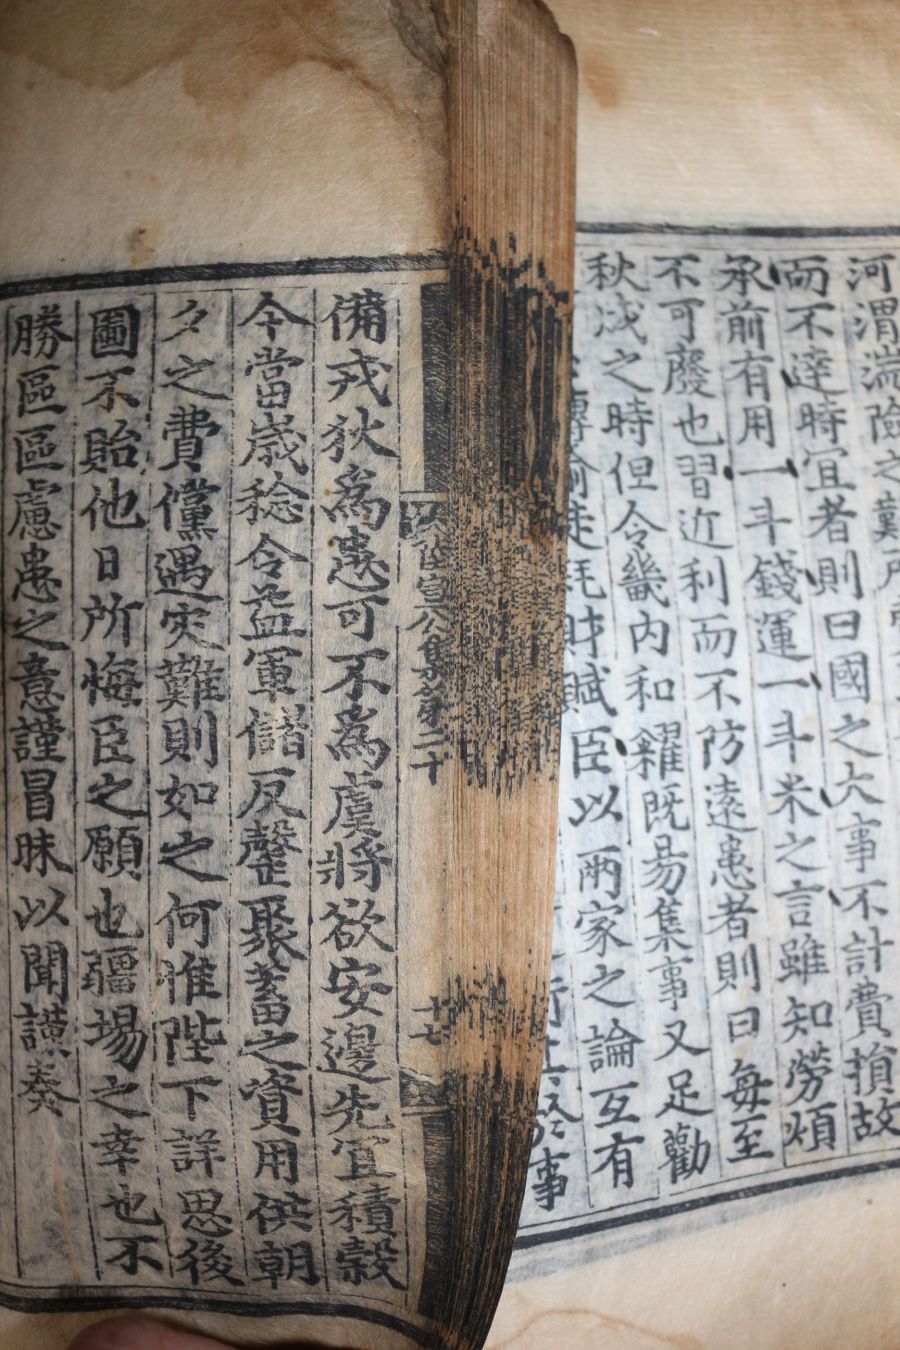 河渭湍險之艱所
而不達時宜者則曰國之大事不計費損故
承前有用一斗錢運一斗米之言雖知勞煩
不可廢也習近利而不防遠患者則曰每至
秋成之時但令畿內和糴既易集事又足勸
轉輸徒耗財賦臣以兩家之論互有
事
陸宣公集第二十
十七
備戎狄爲患可不爲虞將欲安邊先宜積穀
今當歲稔令益軍儲反罄聚蓄之實用供朝
夕之費儻遇災難則如之何惟陛下詳思後
圖不貽他日所悔臣之願也疆場之幸也不
勝區區慮患之意謹冒昧以聞謹奏